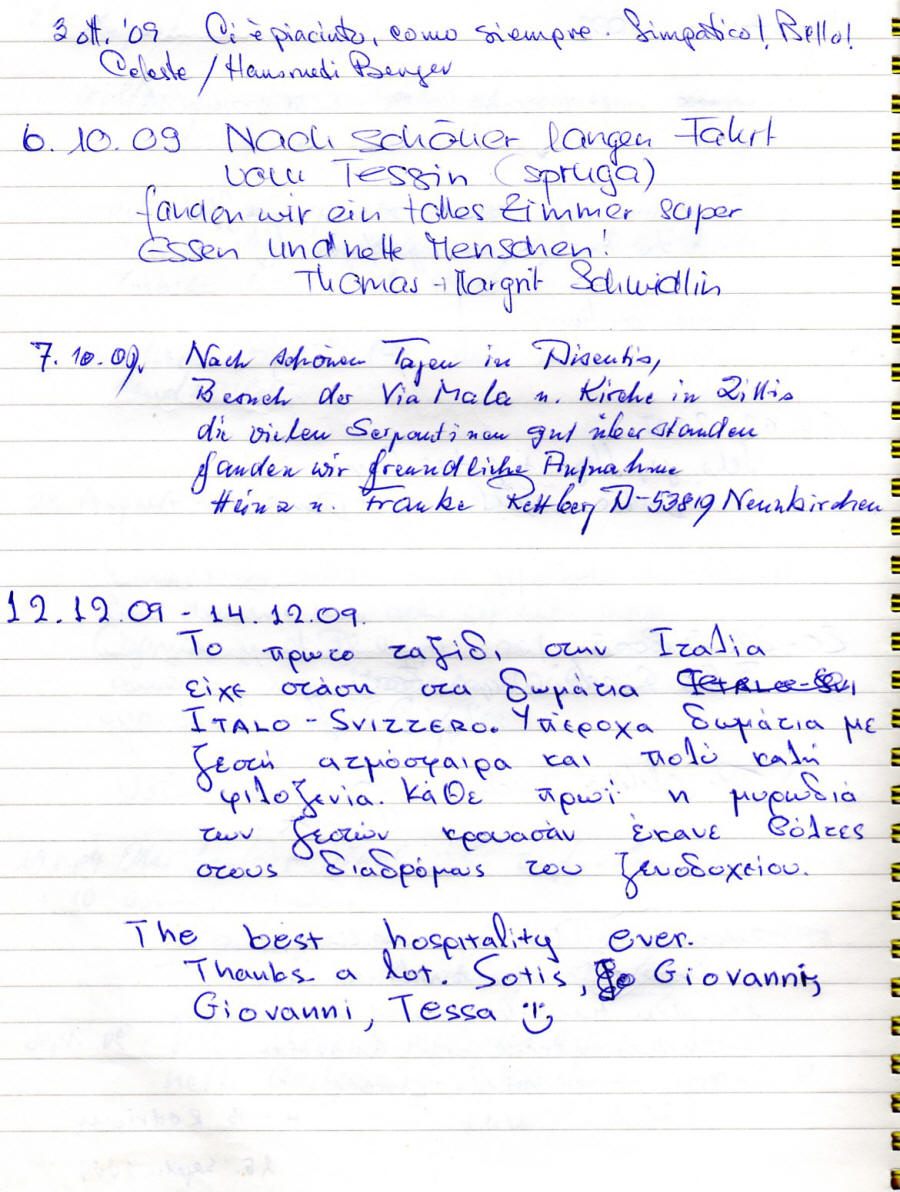 3 ott. '09 Ci è piaciuto, como siempre. Simpatico! Bello!
Celeste / Hansruedi Berger
6.10.09 Nach schöner langen Fahrt
vom Tessin (Spruga)
fanden wir ein tolles Zimmer super
Essen und nette Menschen!
Thomas + Margrit Schmidlin
7.10.09. Nach schönen Tagen in Disentis,
Besuch der Via Mala u. Kirche in Zillis
die vielen Serpentinen gut überstanden
fanden wir freundliche Aufnahme
Heinz u. Frauke Rettberg D-53819 Neunkirchen
12.12.09 - 14.12.09.
Το πρωτο ταξίδι στην Ιταλία
είχε στάση στα δωμάτια
ITALO - SVIZZERO. Υπέροχα δωμάτια με
ζεστή ατμόσφαιρα και πολύ καλή
φιλοξενία. Κάθε πρωί η μυρωδιά
των ζεστών κρουασάν έκανε βόλτες
στους διαδρόμους του ξενοδοχείου.
The best hospitality ever.
Thanks a lot. Sotis, Giovanni,
Giovanni, Tessa